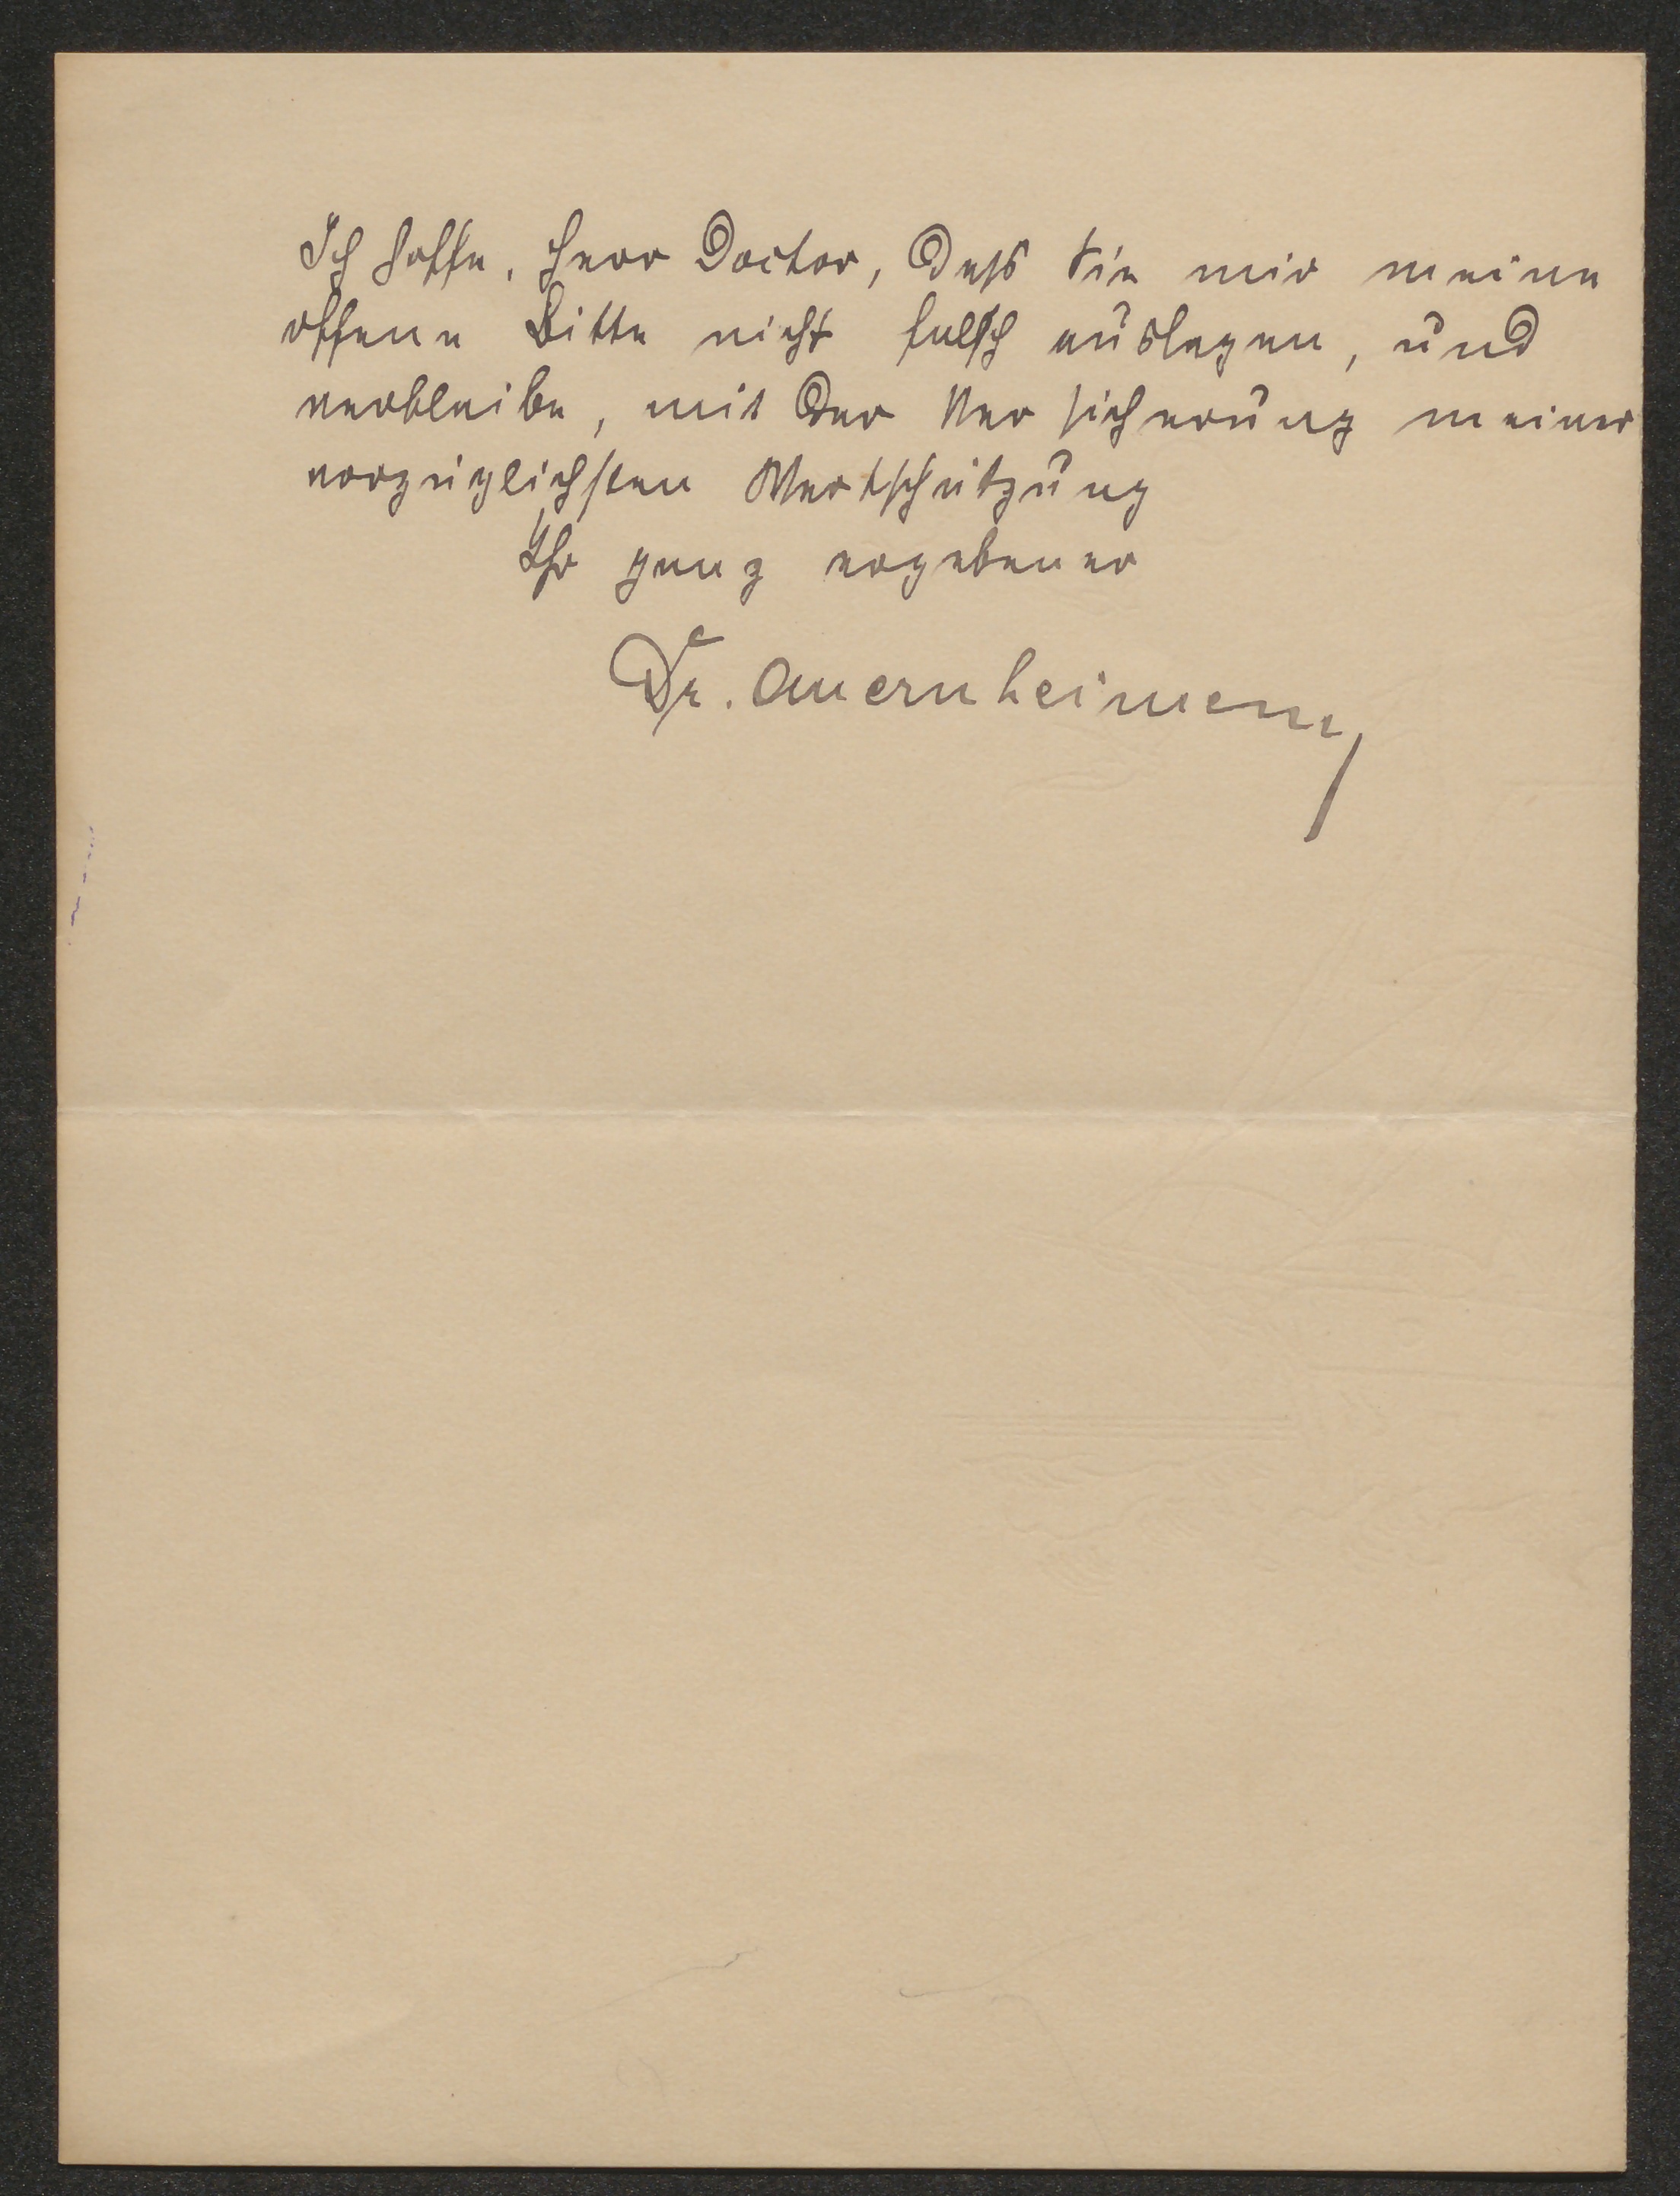 Ich hoffe, Herr Doctor, dass Sie mir meine
offene Bitte nicht falsch auslegen, und
verbleibe, mit der Versicherung meiner
vorzüglichsten Wertschätzung
Ihr ganz ergebener
Dr. Auernheimer